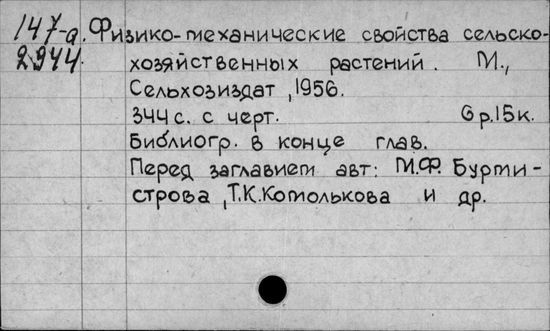 147-а. Физико-механические свойства сельско-
2944. хозяйственных растений. М.,
Сельхозиздат, 1956.
344 с. с черт. 6 р. 15 к.
Библиогр. в конце глав.
Перед заглавием авт: М.Ф. Бурми-
строва, Т.К. Комолькова и др.